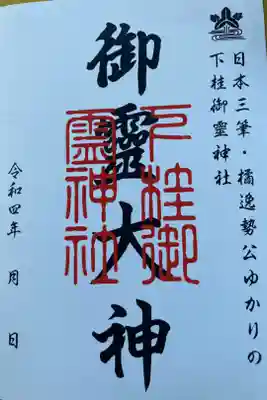 日本三筆・橘逸勢公ゆかりの
下桂御霊神社
御靈大神
下桂御
霊神社
令和四年 月 日